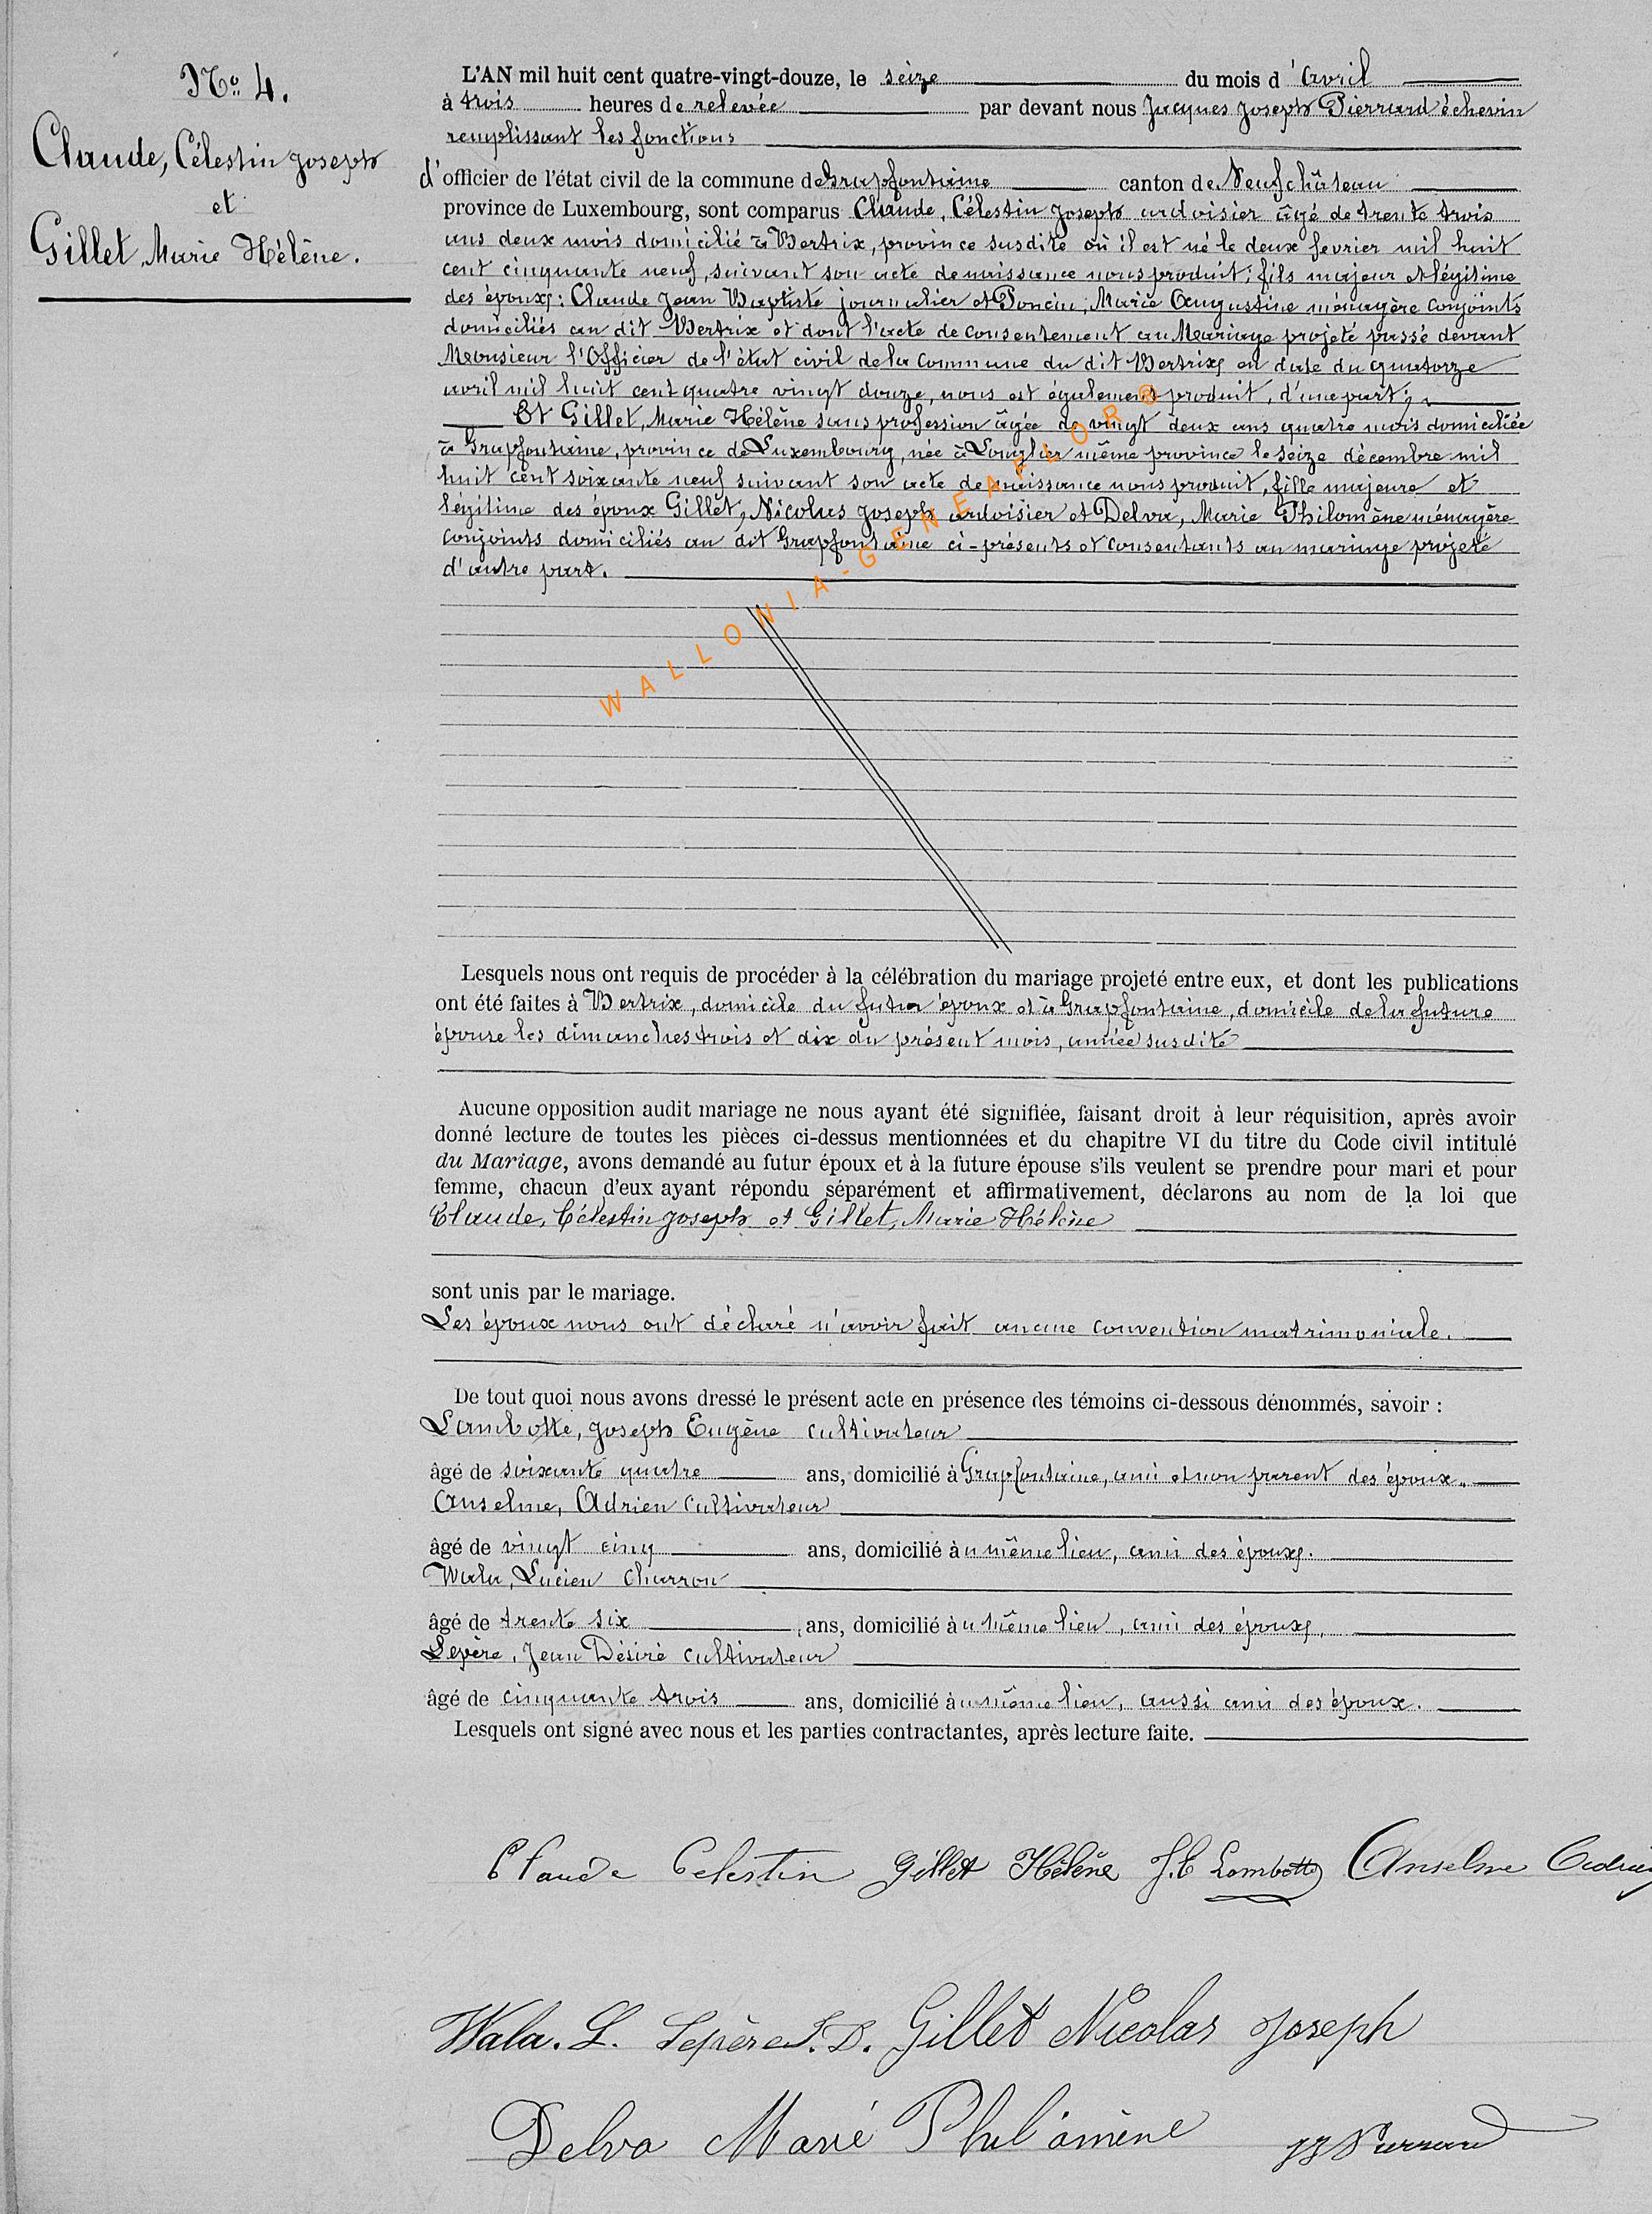 N° 4.
Claude, Célestin Joseph
et
Gillet, Marie Hélène.
L'AN mil huit cent quatre-vingt-douze, le seize du mois d'avril
à trois heures de relevée par devant nous Jacques Joseph Pierrard échevin
remplissant les fonctions
d'officier de l'état civil de la commune de Grapfontaine canton de Neufchâteau
province de Luxembourg, sont comparus Claude, Célestin Joseph ardoisier âgé de trente trois
ans deux mois domicilié à Bertrix, province susdite où il est né le deux fevrier mil huit
cent cinquante neuf, suivant son acte de naissance nous produit; fils majeur et légitime
des époux: Claude Jean Baptiste journalier et Poncin, Marie Augustine ménagère conjoints
domiciliés au dit Bertrix et dont l'acte de consentement au Mariage projeté passé devant
Monsieur l'Officier de l'état civil de la Commune du dit Bertrix en date du quatorze
avril mil huit cent quatre vingt douze, nous est également produit, d'une part;
Et Gillet, Marie Hélène sans profession âgée de vingt deux ans quatre mois domiciliée
à Grapfontaine, province de Luxembourg, née à Longlier même province le seize décembre mil
huit cent soixante neuf suivant son acte de naissance nous produit, fille majeure et
légitime des époux Gillet, Nicolas Joseph ardoisier et Delva, Marie Philomène ménagère
conjoints domiciliés au dit Grapfontaine ci-présents et consentants au mariage projeté
d'autre part.
WALLONIA-GENEAFLOR ®
Lesquels nous ont requis de procéder à la célébration du mariage projeté entre eux, et dont les publications
ont été faites à Bertrix, domicile du futur époux et à Grapfontaine, domicile de la future
épouse les dimanches trois et dix du présent mois, année susdite
Aucune opposition audit mariage ne nous ayant été signifiée, faisant droit à leur réquisition, après avoir
donné lecture de toutes les pièces ci-dessus mentionnées et du chapitre VI du titre du Code civil intitulé
du Mariage, avons demandé au futur époux et à la future épouse s'ils veulent se prendre pour mari et pour
femme, chacun d'eux ayant répondu séparément et affirmativement, déclarons au nom de la loi que
Claude, Célestin Joseph et Gillet, Marie Hélène
sont unis par le mariage.
Les époux nous ont déclaré n'avoir fait aucune convention matrimoniale.
De tout quoi nous avons dressé le présent acte en présence des témoins ci-dessous dénommés, savoir :
Lambotte, Joseph Eugène cultivateur
âgé de soixante quatre ans, domicilié à Grapfontaine, ami et non parent des époux.
Anselme, Adrien cultivateur
âgé de vingt cinq ans, domicilié au même lieu, ami des époux.
Wala, Lucien charron
âgé de trente six ans, domicilié au même lieu, ami des époux.
Lepère, Jean Désiré cultivateur
âgé de cinquante trois ans, domicilié au même lieu, aussi ami des époux.
Lesquels ont signé avec nous et les parties contractantes, après lecture faite.
Claude Celestin Gillet Hélène J. E Lambotte Anselme Adrien
Wala. L. Lepère J. D. Gillet Nicolas Joseph
Delva Marie Philomène JJ Pierrard